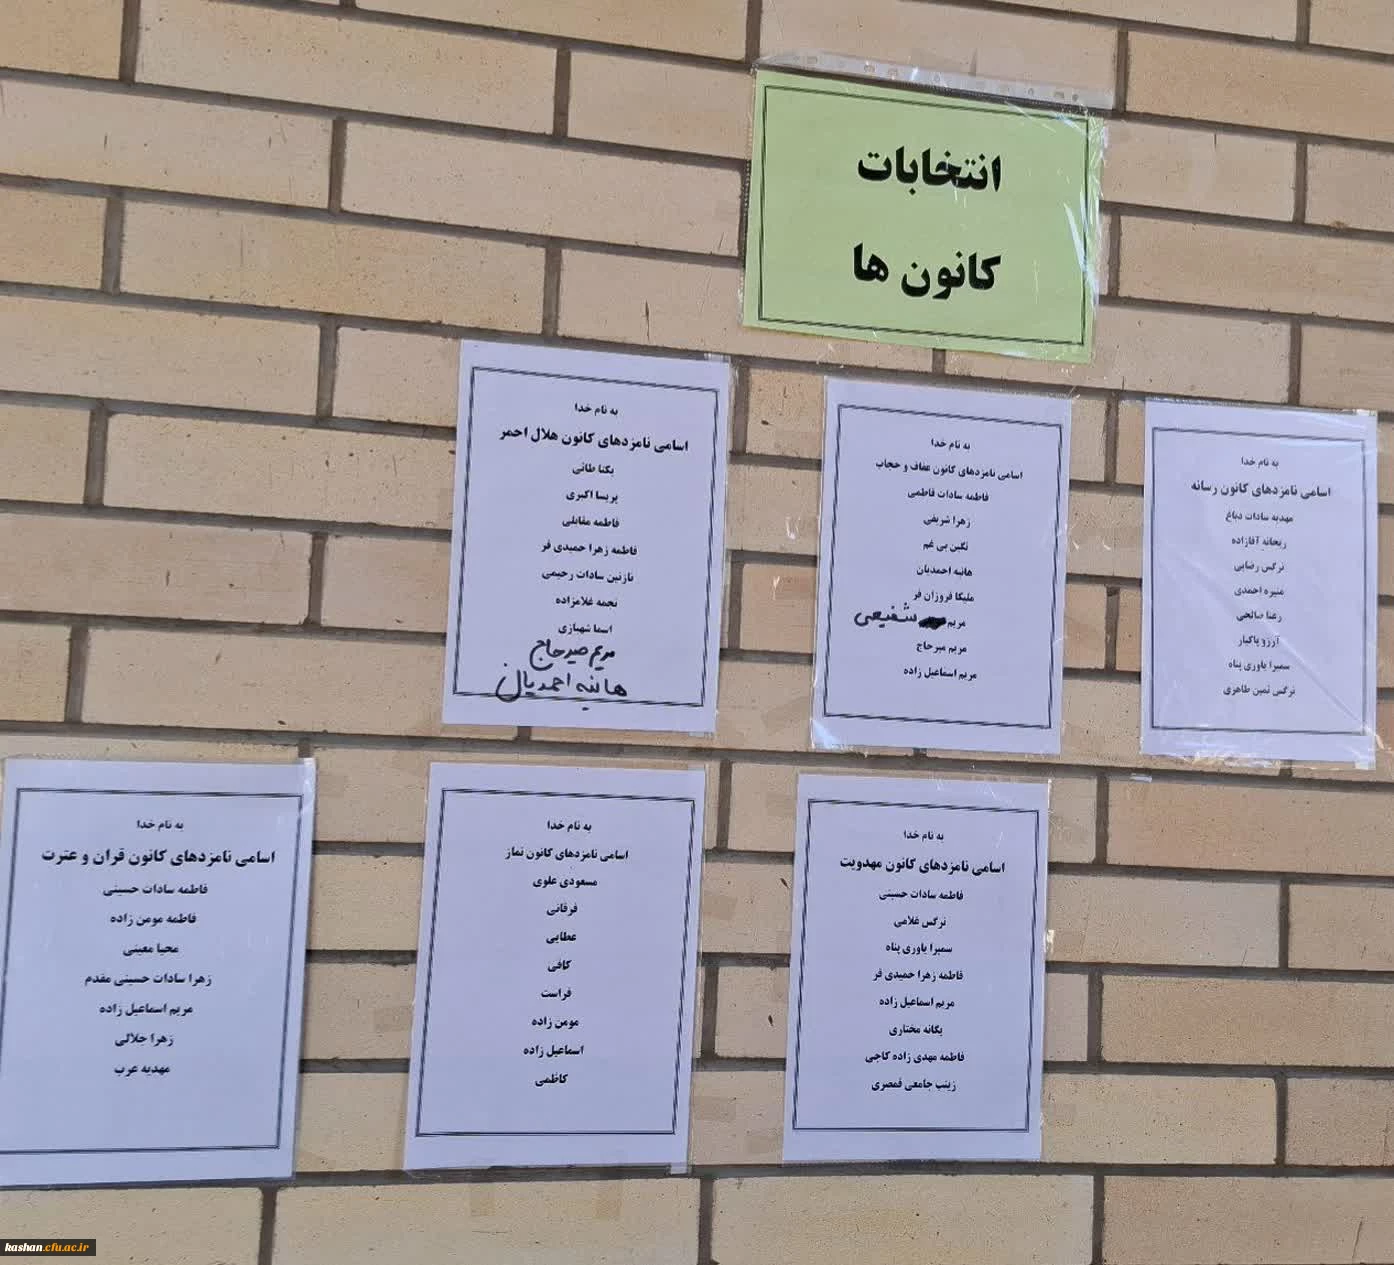 انتخابات
کانون ها
به نام خدا
اسامی نامزدهای کانون رسانه
مهدیه سادات دباغ
ریحانه آقازاده
نرگس رضایی
منیره احمدی
رعنا صالحی
آرزو پاکیار
سمیرا یاوری پناه
نرگس ثمین طاهری
به نام خدا
اسامی نامزدهای کانون عفاف و حجاب
فاطمه سادات فاطمی
زهرا شریفی
نگین بی غم
هانیه احمدیان
ملیکا فروزان فر
مریم شفیعی
مریم میرحاج
مریم اسماعیل زاده
به نام خدا
اسامی نامزدهای کانون هلال احمر
یکتا طائی
پریسا اکبری
فاطمه مقابلی
فاطمه زهرا حمیدی فر
نازنین سادات رحیمی
نجمه غلامزاده
اسما شهبازی
مریم میرحاج
هانیه احمدیان
به نام خدا
اسامی نامزدهای کانون مهدویت
فاطمه سادات حسینی
نرگس غلامی
سمیرا یاوری پناه
فاطمه زهرا حمیدی فر
مریم اسماعیل زاده
یگانه مختاری
فاطمه مهدی زاده کاجی
زینب جامعی قمصری
به نام خدا
اسامی نامزدهای کانون نماز
مسعودی علوی
فرقانی
عطایی
کافی
فراست
مومن زاده
اسماعیل زاده
کاظمی
به نام خدا
اسامی نامزدهای کانون قران و عترت
فاطمه سادات حسینی
فاطمه مومن زاده
محیا معینی
زهرا سادات حسینی مقدم
مریم اسماعیل زاده
زهرا جلالی
مهدیه عرب
kashan.cfu.ac.ir